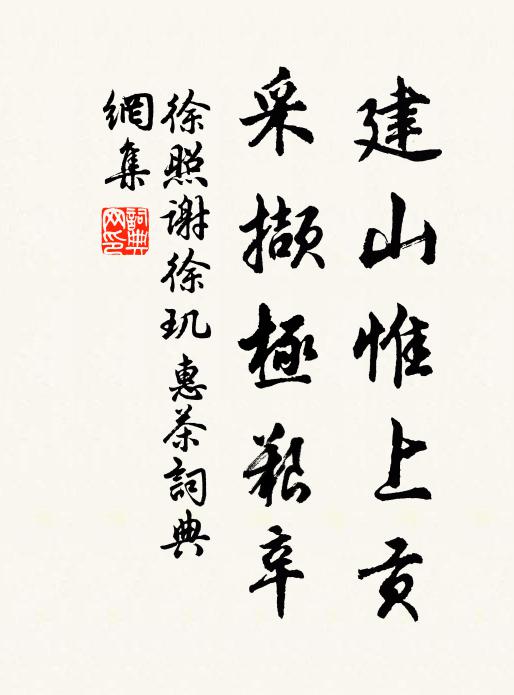 建山惟上贡
采撷極艱辛
徐照謝徐玑惠茶詞典
網集
詞典网印